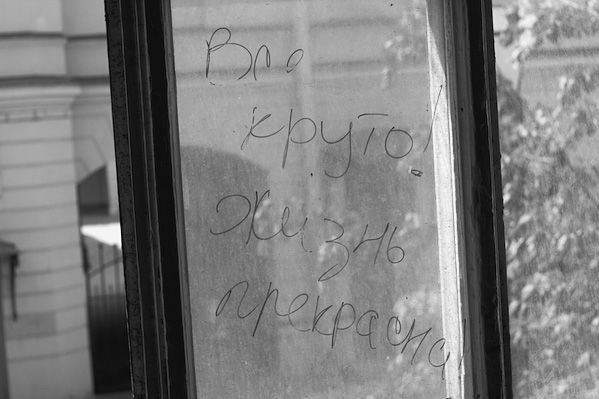 Все
круто!
Жизнь
прекрасна!